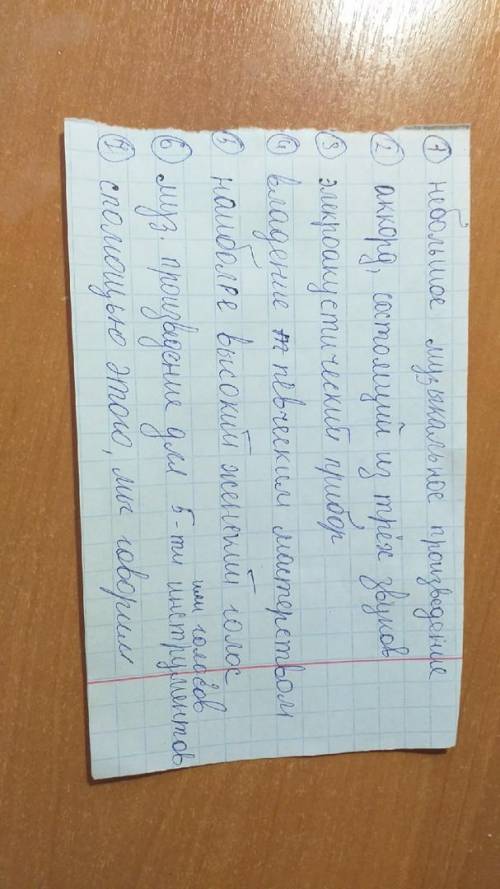 1 небольшое музыкальное произведение
2 аккорд, состоящий из трёх звуков
3 элекроакустический прибор
4 владение певческим мастерством
5 наиболее высокий женский голос
6 муз. произведение для 5-ти инструментов
или голосов
7 спомощью этого, мы говорим